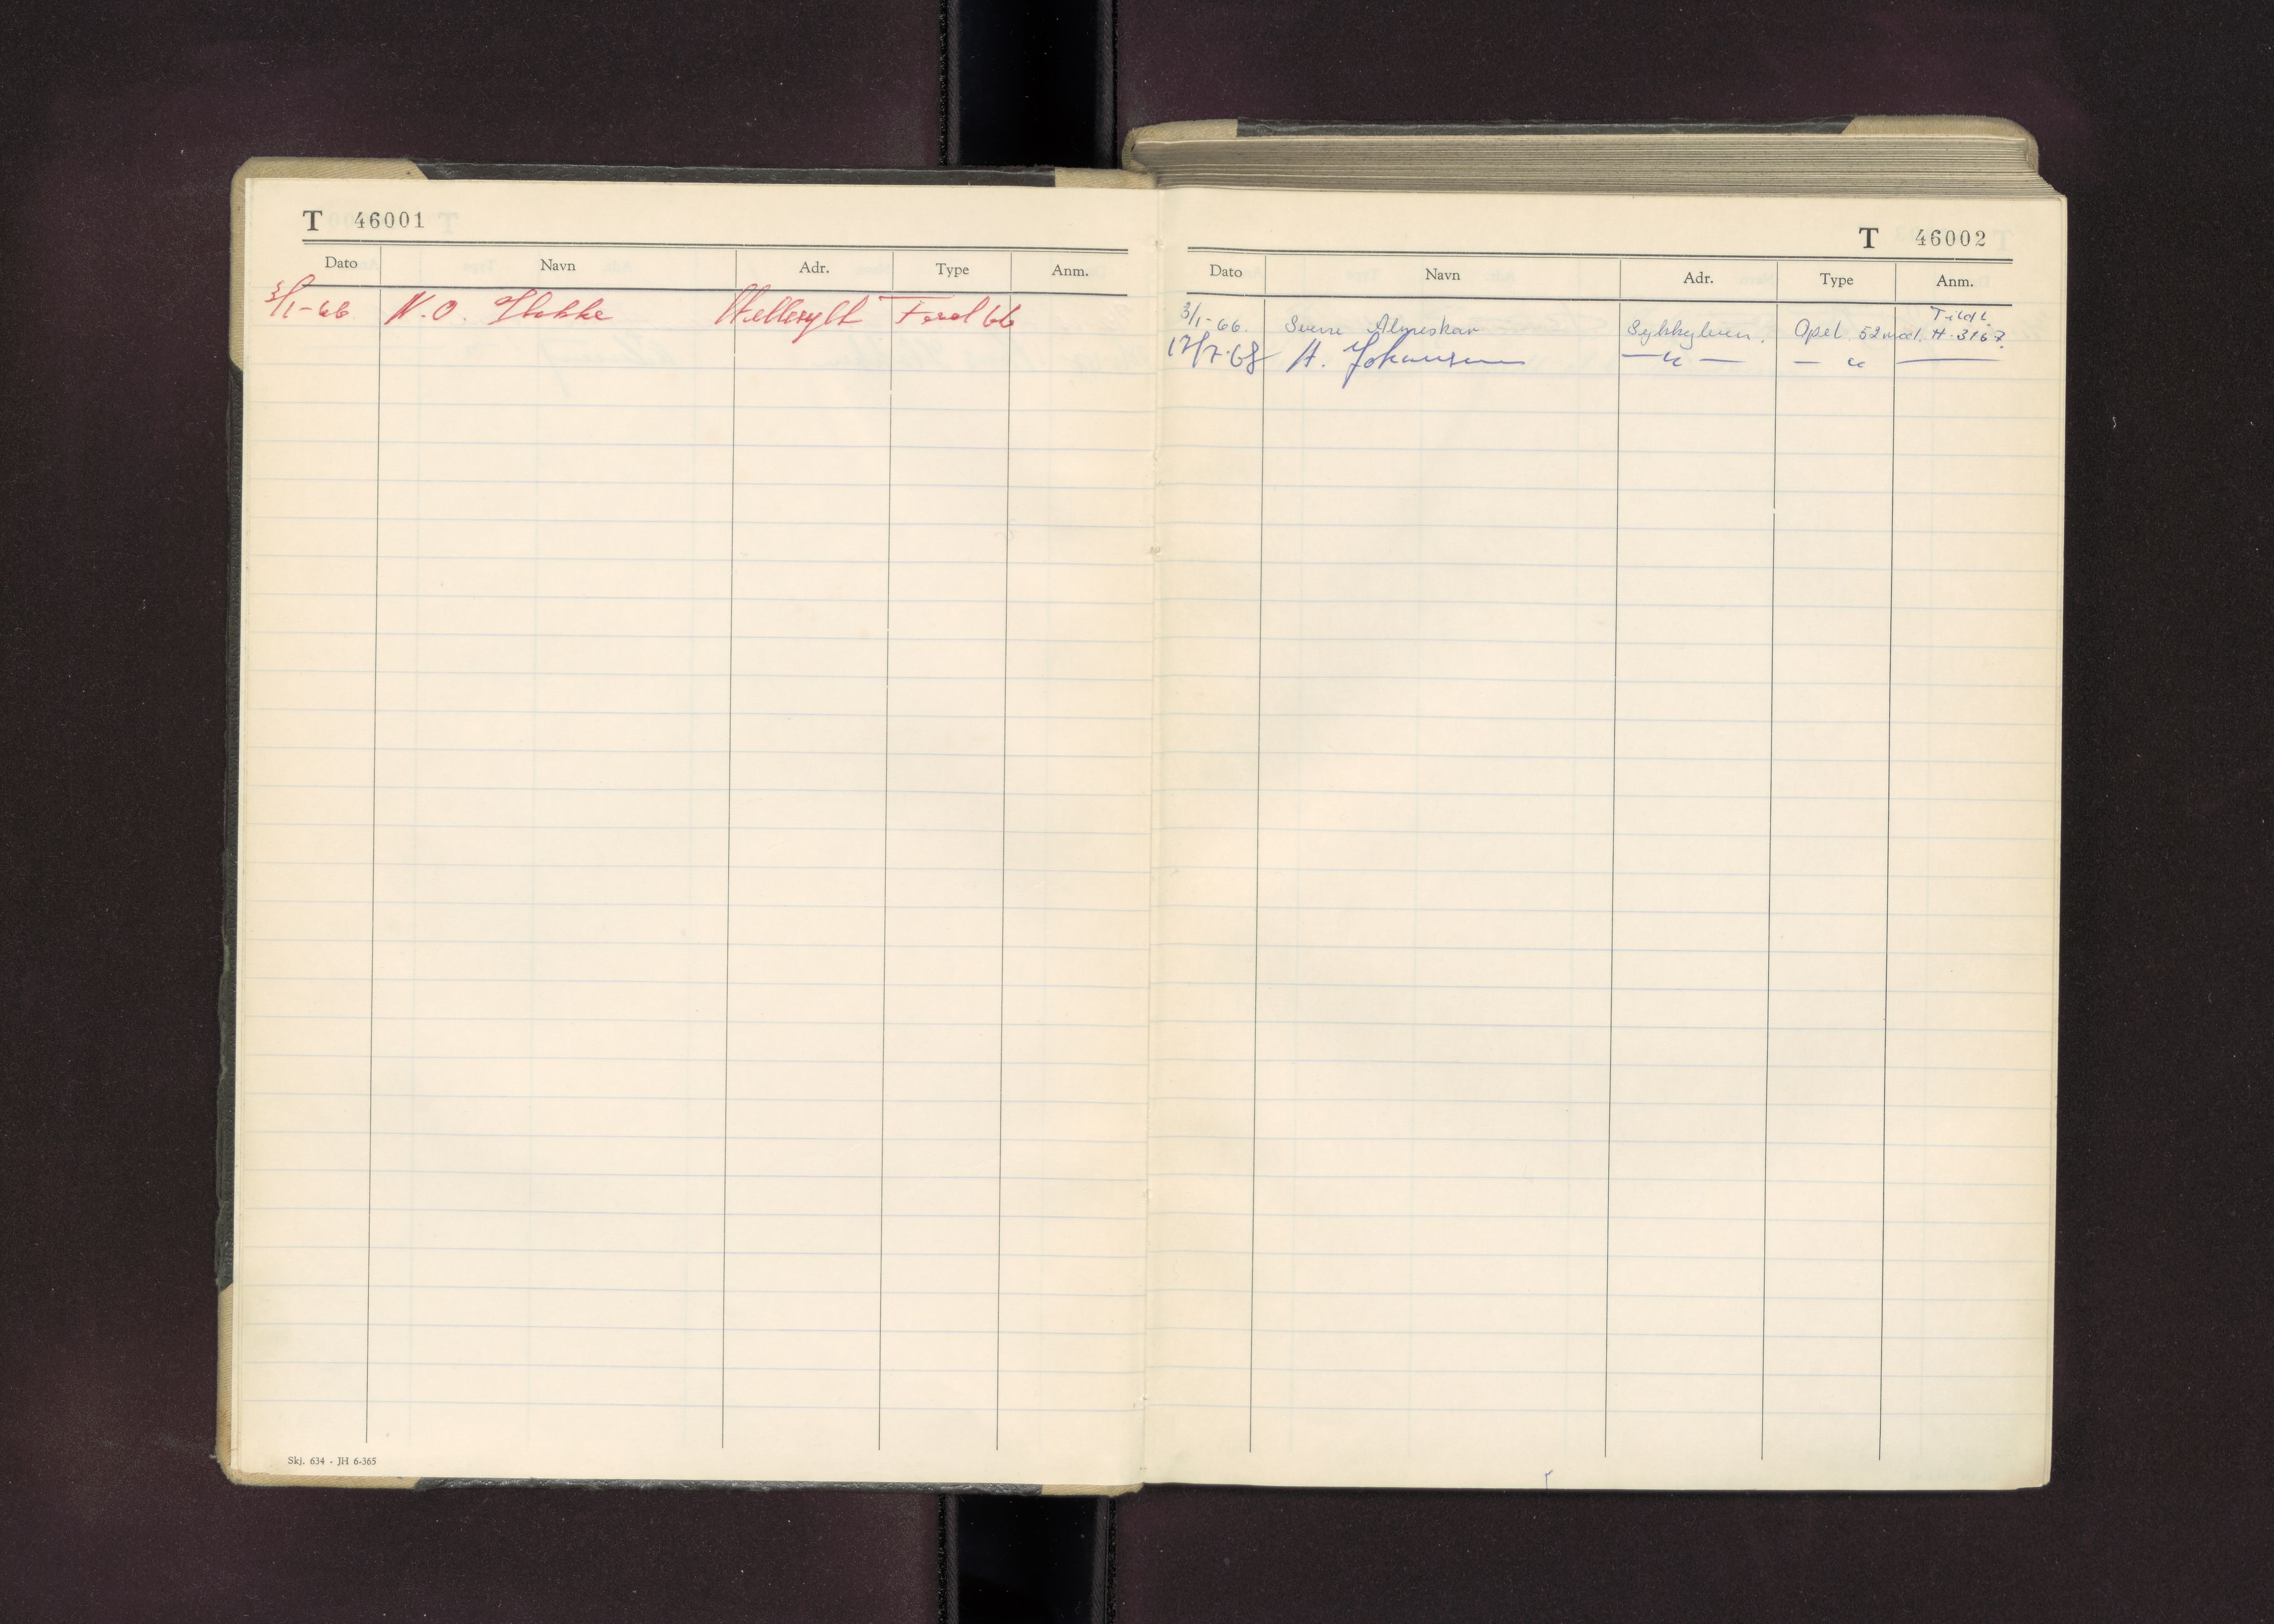 T 46001
Dato Navn Adr. Type Anm.
3/1-66 N.O. Hellesylt Ford 66
Skj. 634 - JH 6-365
T 46002
Dato Navn Adr. Type Anm.
Tidl.
3/1-66. Sverre Almeskar Sykkylven. Opel 52 mod. H-3167.
17/7-68 A. Johansen — " — — "